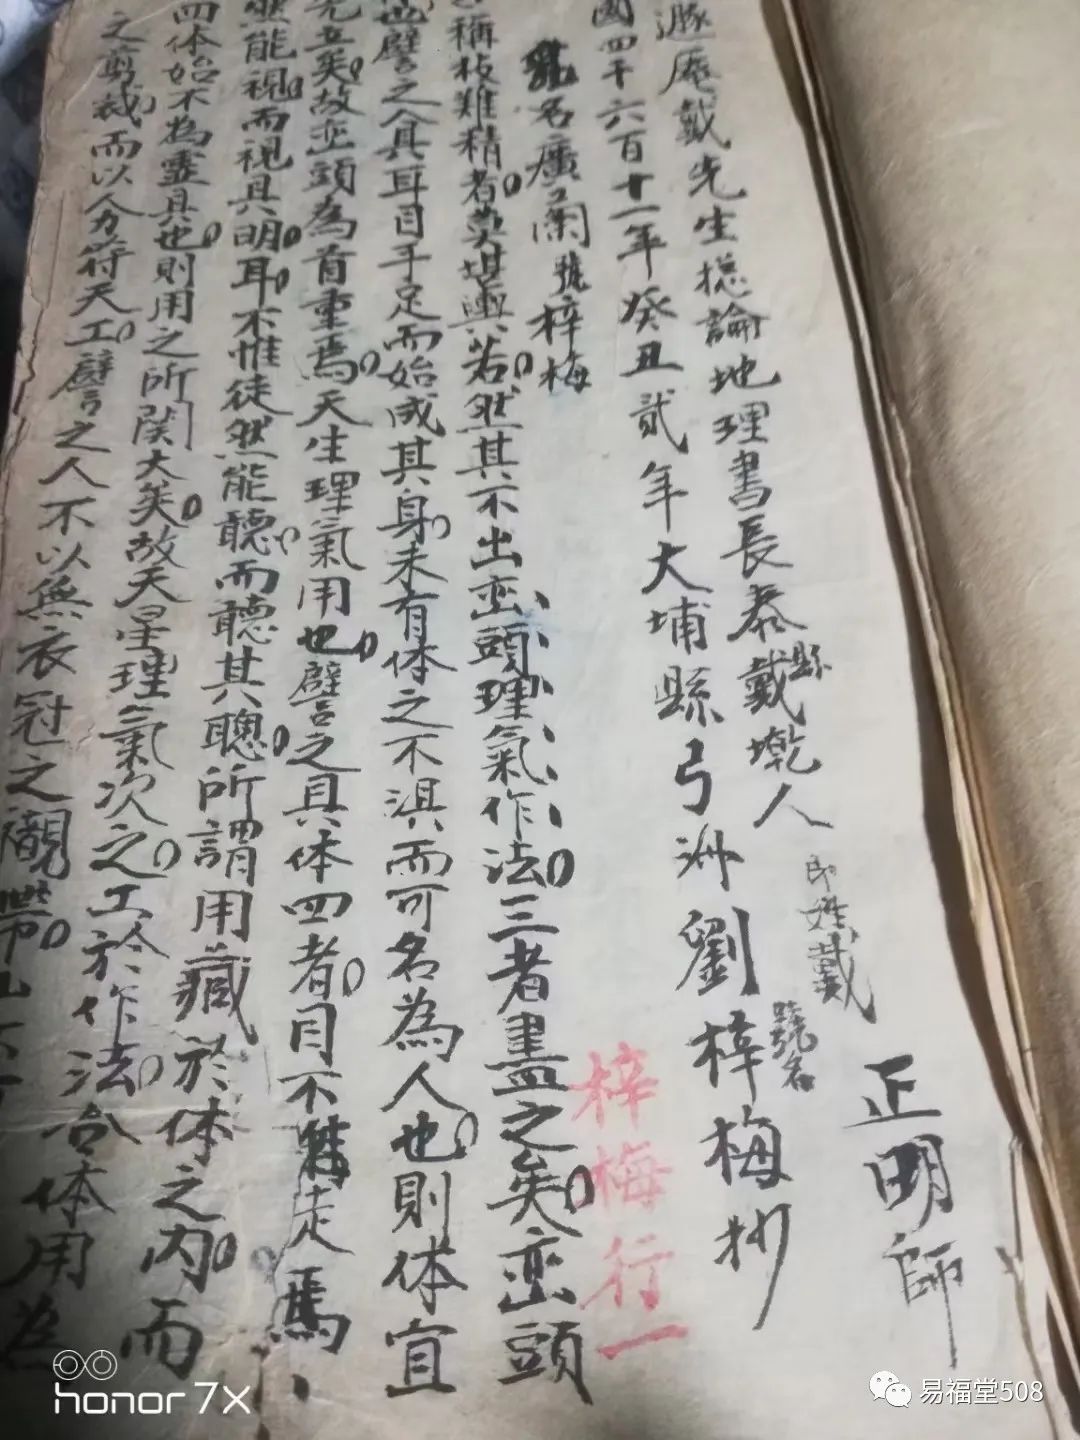 遯庵戴先生摠論地理書長泰縣戴墘人
即姓戴
正明師
國四千六百十一年癸丑貳年大埔縣弓洲劉梓梅抄
號名
名廣蘭號梓梅
梓梅行一
稱枝難精者莫堪輿若然其不出巒頭理氣作法三者盡之矣巒頭
也譬之人具耳目手足而始成其身未有体之不淇而可名為人也則体宜
先立矣故巒頭為首重焉天生理氣用也譬之具体四者目不徒走焉
然能視而視具明耳不惟徒然能聽而聽其聰所謂用藏於体之內而
四体始不為靈具也則用之所関大矣故天星理氣次之工於作法合体用為
之剪裁而以人力符天工譬之人不以無衣冠之觀
honor 7X
易福堂508